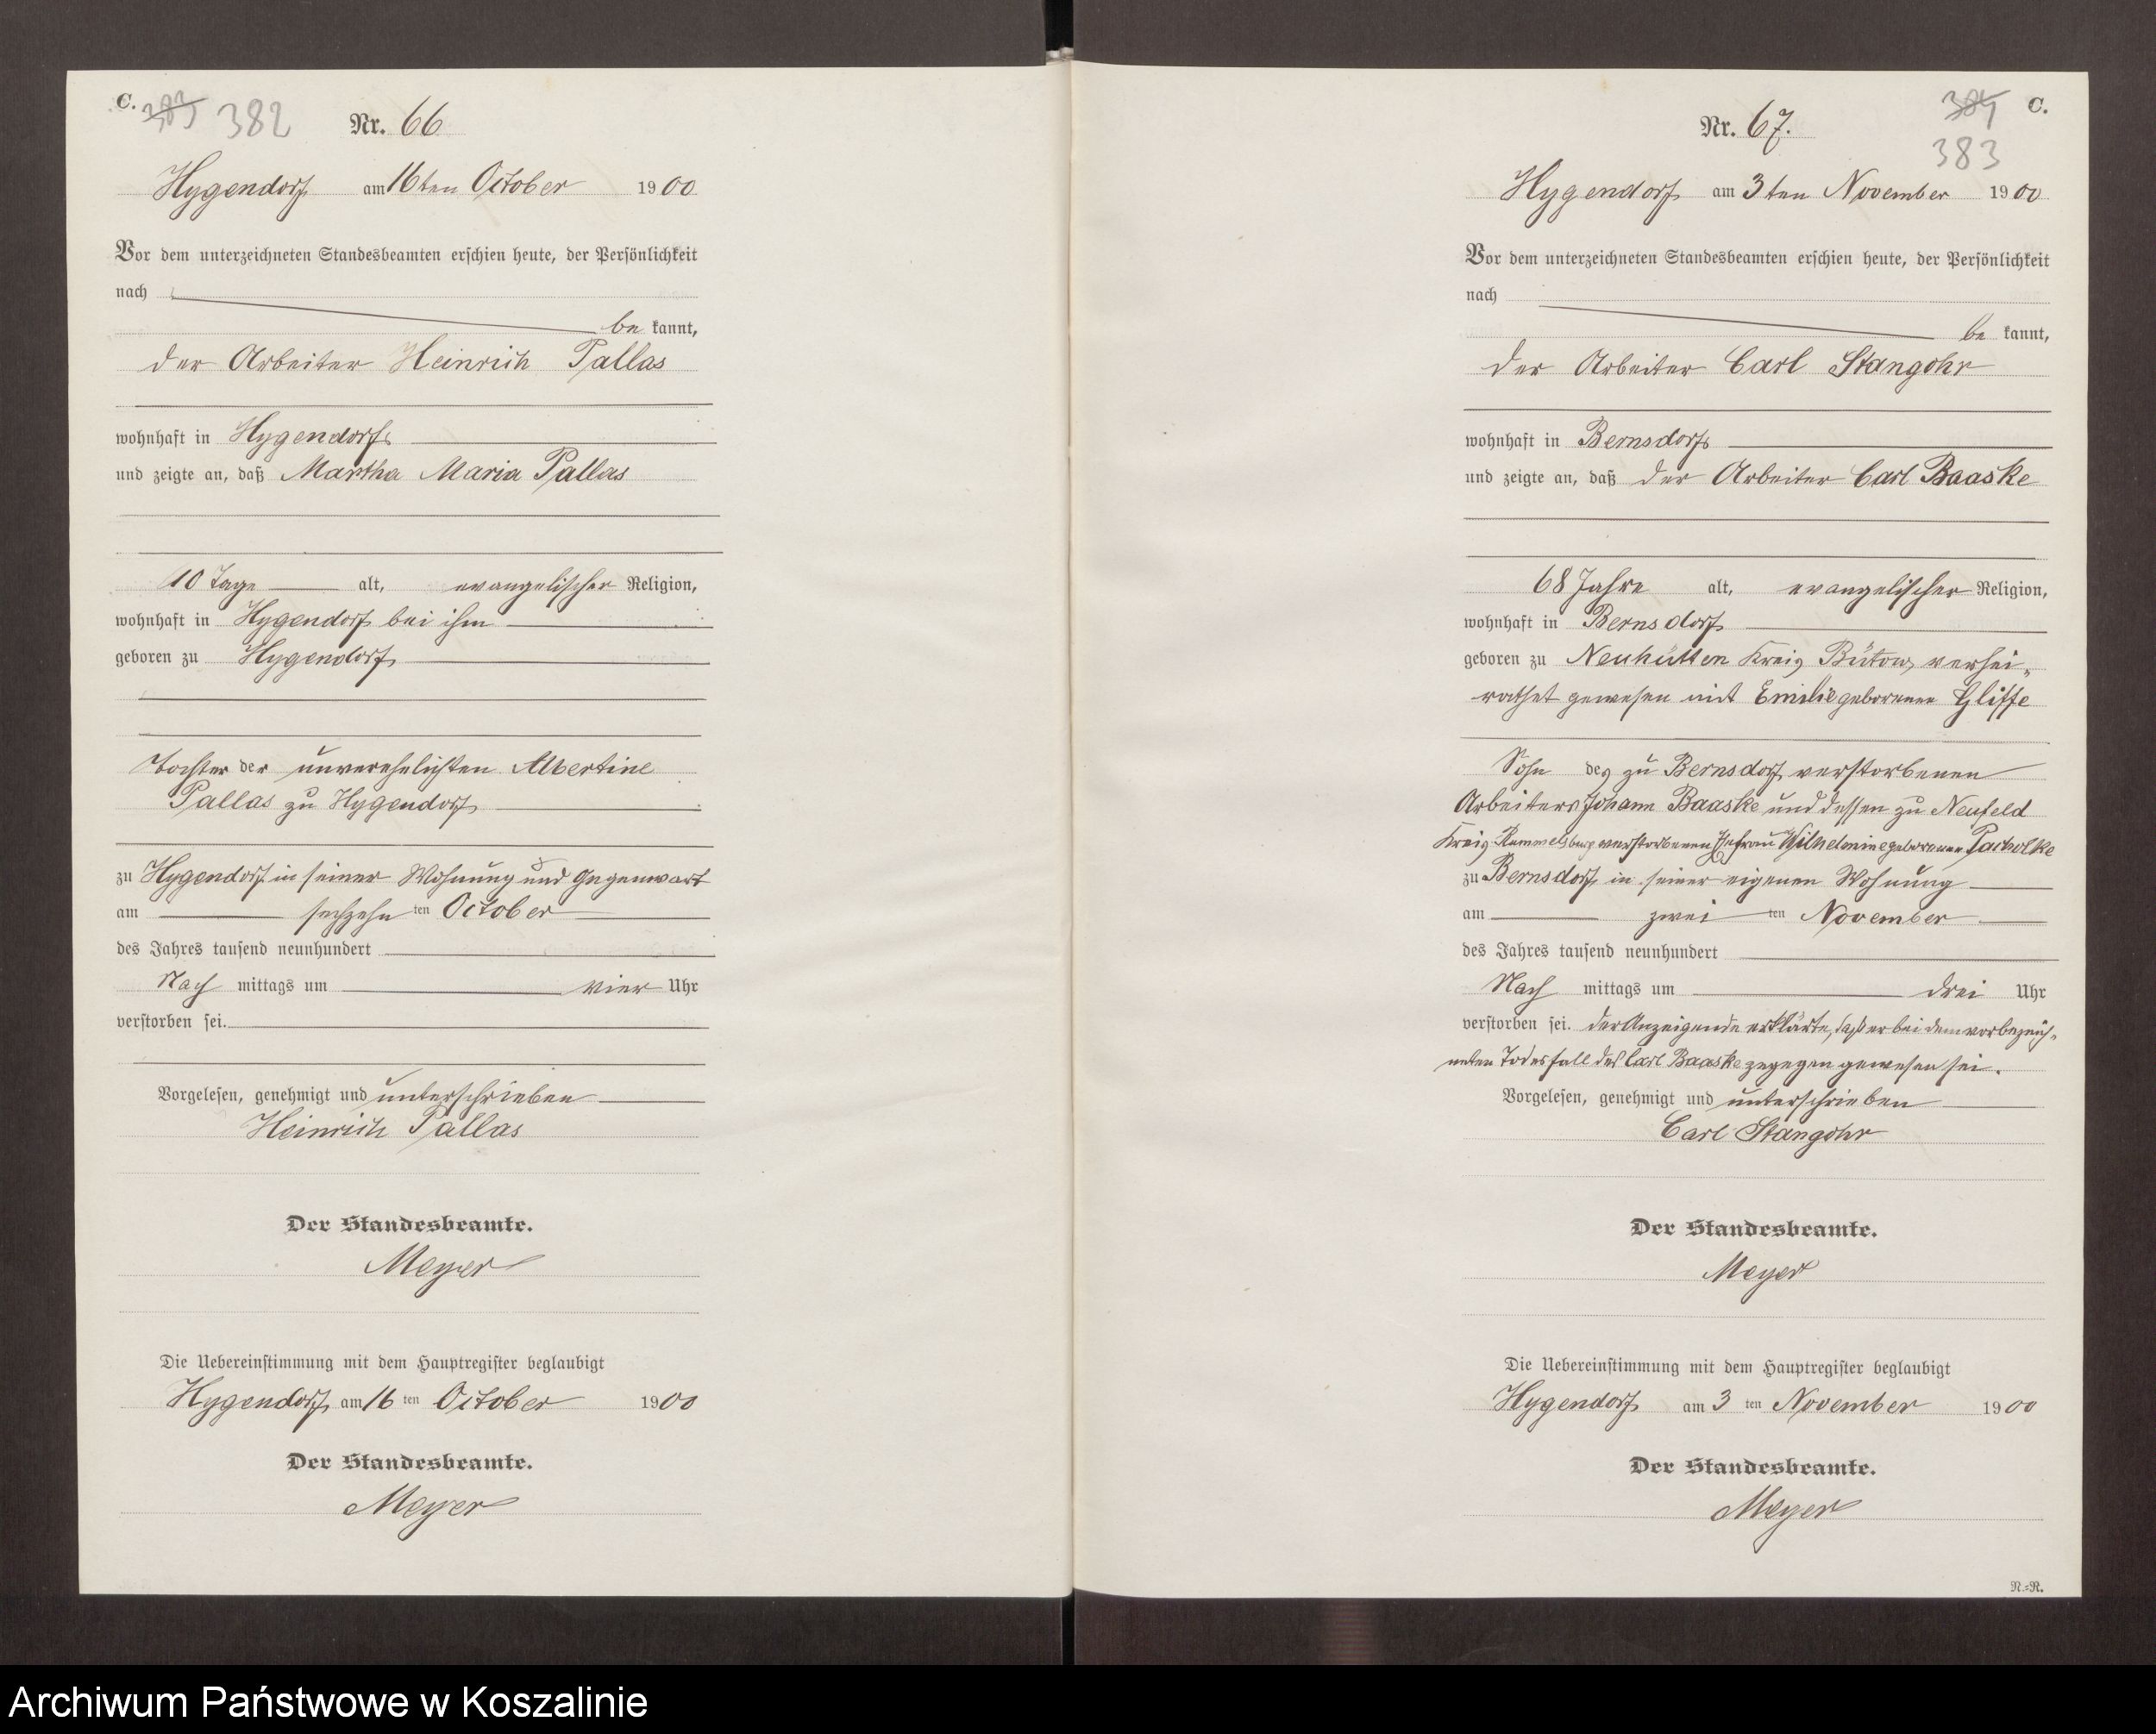 C.
383 382
Nr. 66
Hygendorf am 16ten October 1900
Vor dem unterzeichneten Standesbeamten erschien heute, der Persönlichkeit
nach
be kannt,
der Arbeiter Heinrich Pallas
wohnhaft in Hygendorf
und zeigte an, daß Martha Maria Pallas
10 Tage alt, evangelischer Religion,
wohnhaft in Hygendorf bei ihm
geboren zu Hygendorf
Tochter der unverehelichten Albertine
Pallas zu Hygendorf
zu Hygendorf in seiner Wohnung und Gegenwart
am sechzehn ten October
des Jahres tausend neunhundert
Nach mittags um vier Uhr
verstorben sei.
Vorgelesen, genehmigt und unterschrieben
Heinrich Pallas
Der Standesbeamte.
Meyer
Die Uebereinstimmung mit dem Hauptregister beglaubigt
Hygendorf am 16 ten October 1900
Der Standesbeamte.
Meyer
384 C.
Nr. 67.
383
Hygendorf am 3ten November 1900
Vor dem unterzeichneten Standesbeamten erschien heute, der Persönlichkeit
nach
be kannt,
der Arbeiter Carl Stangohr
wohnhaft in Bernsdorf
und zeigte an, daß der Arbeiter Carl Baaske
68 Jahre alt, evangelischer Religion,
wohnhaft in Bernsdorf
geboren zu Neuhütten Kreis Bütow, verhei-
rathet gewesen mit Emilie geborenen Gliffe
Sohn des zu Bernsdorf verstorbenen
Arbeiters Johann Baaske und dessen zu Neufeld
Kreis Rummelsburg verstorbenen Ehefrau Wilhelmine geborenen Pacholke
zu Bernsdorf in seiner eigenen Wohnung
am zwei ten November
des Jahres tausend neunhundert
Nach mittags um drei Uhr
verstorben sei. Der Anzeigende erklärte, daß er bei dem vorbezeich-
neten Todesfall des Carl Baaske zugegen gewesen sei.
Vorgelesen, genehmigt und unterschrieben
Carl Stangohr
Der Standesbeamte.
Meyer
Die Uebereinstimmung mit dem Hauptregister beglaubigt
Hygendorf am 3 ten November 1900
Der Standesbeamte.
Meyer
N.=R.
Archiwum Państwowe w Koszalinie